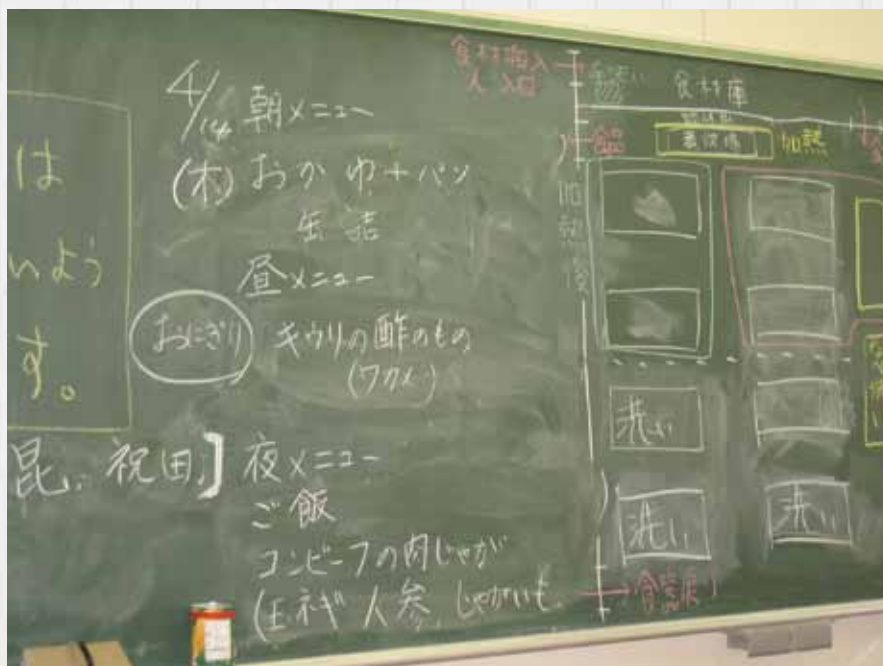 は
いよう
す。
昆、祝田、】
4/14 朝メニュー
(木) おかゆ+パン
缶詰
昼メニュー
おにぎり キウリの酢のもの
(ワカメ)
夜メニュー
ご飯
コンビーフの肉じゃが
(玉ネギ 人参、じゃがいも
食材搬入
入口
手洗い
食材庫
加熱
加熱後
洗い
洗い
洗い